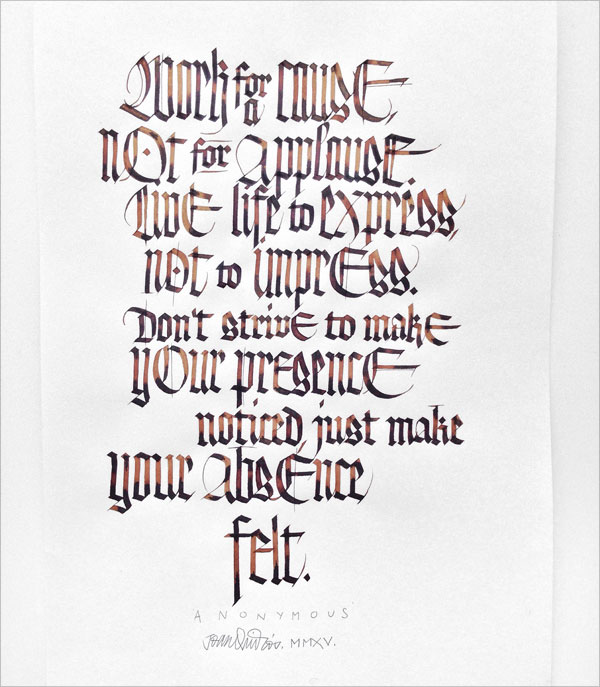 Work for a cause,
not for applause.
Live life to express,
not to impress.
Don't strive to make
your presence
noticed, just make
your absence
felt.
ANONYMOUS
JOAN QUIRÓS. MMXV.